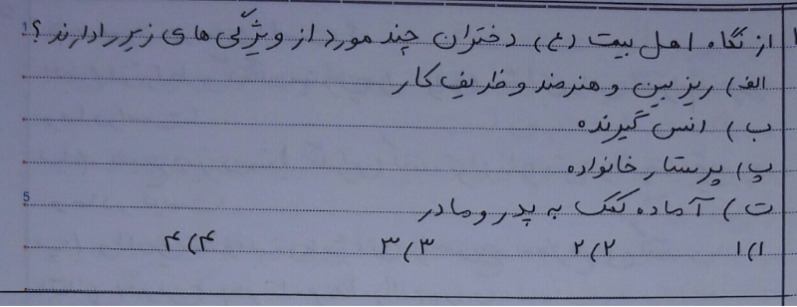 از نگاه اهل بیت (ع) دختران چند مورد از ویژگی های زیر را دارند؟
الف) ریز بین و هنرمند و ظریف کار
ب) انس گیرنده
پ) پرستار خانواده
ت) آماده کمک به پدر و مادر
۱) ۱ ۲) ۲ ۳) ۳ ۴) ۴
5